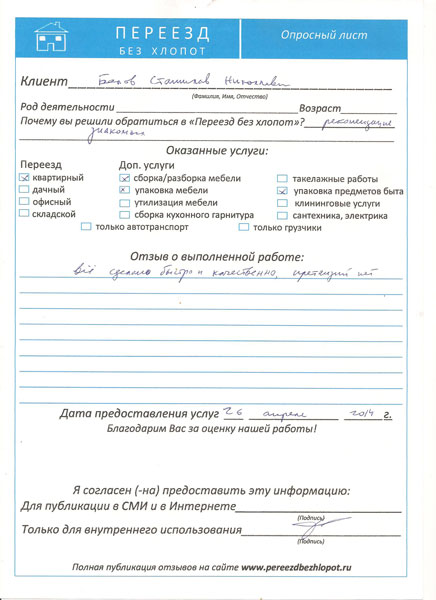 ПЕРЕЕЗД
БЕЗ ХЛОПОТ
Опросный лист
Клиент Станислав Николаевич
(Фамилия, Имя, Отчество)
Род деятельности Возраст
Почему вы решили обратиться в «Переезд без хлопот»? рекомендация
знакомых
Оказанные услуги:
Переезд Доп. услуги
квартирный сборка/разборка мебели такелажные работы
дачный упаковка мебели упаковка предметов быта
офисный утилизация мебели клининговые услуги
складской сборка кухонного гарнитура сантехника, электрика
только автотранспорт только грузчики
Отзыв о выполненной работе:
Всё сделано быстро и качественно, претензий нет
Дата предоставления услуг 26 апреля 2014 г.
Благодарим Вас за оценку нашей работы!
Я согласен (-на) предоставить эту информацию:
Для публикации в СМИ и в Интернете
(Подпись)
Только для внутреннего использования
(Подпись)
Полная публикация отзывов на сайте www.pereezdbezhlopot.ru